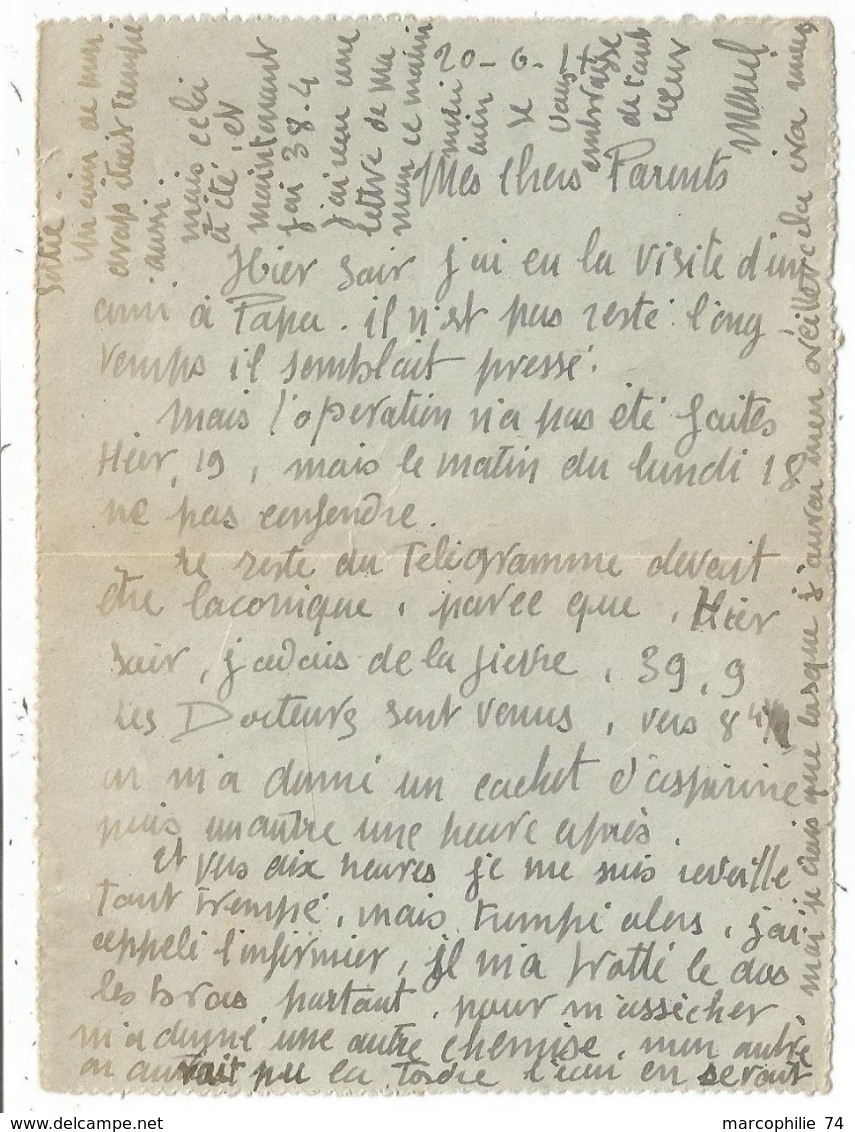 20-6-1
Mes chers Parents
Hier soir j'ai eu la visite d'un
ami à Papa. il n'est pas resté long
temps il semblait pressé.
Mais l'opération n'a pas été faites
Hier, 19, mais le matin du lundi 18
ne pas confondre.
Le reste du Télégramme devait
être laconique, parce que, Hier
soir, j'avais de la fievre, 39,9
Les Docteurs sont venus, vers 8 h
on m'a donné un cachet d'aspirine
puis un autre une heure après.
Et vers dix heures je me suis reveillé
tout trempé, mais trempé alors, j'ai
appelé l'infirmier, il m'a frotté le dos
les bras partout, pour m'assécher
m'a donné une autre chemise, mon autre
on aurait pu la tordre l'eau en serait
sortie.
Un coin de mon
avais était trempé
aussi.
mais cela
a été, et
maintenant
j'ai 38.4
j'ai eu une
lettre de Ma
man ce matin
Je
vous
embrasse
de tout
cœur
Marcel
moi je crois que lorsque j'aurai mon oreiller cela ira mieux
marcophilie 74